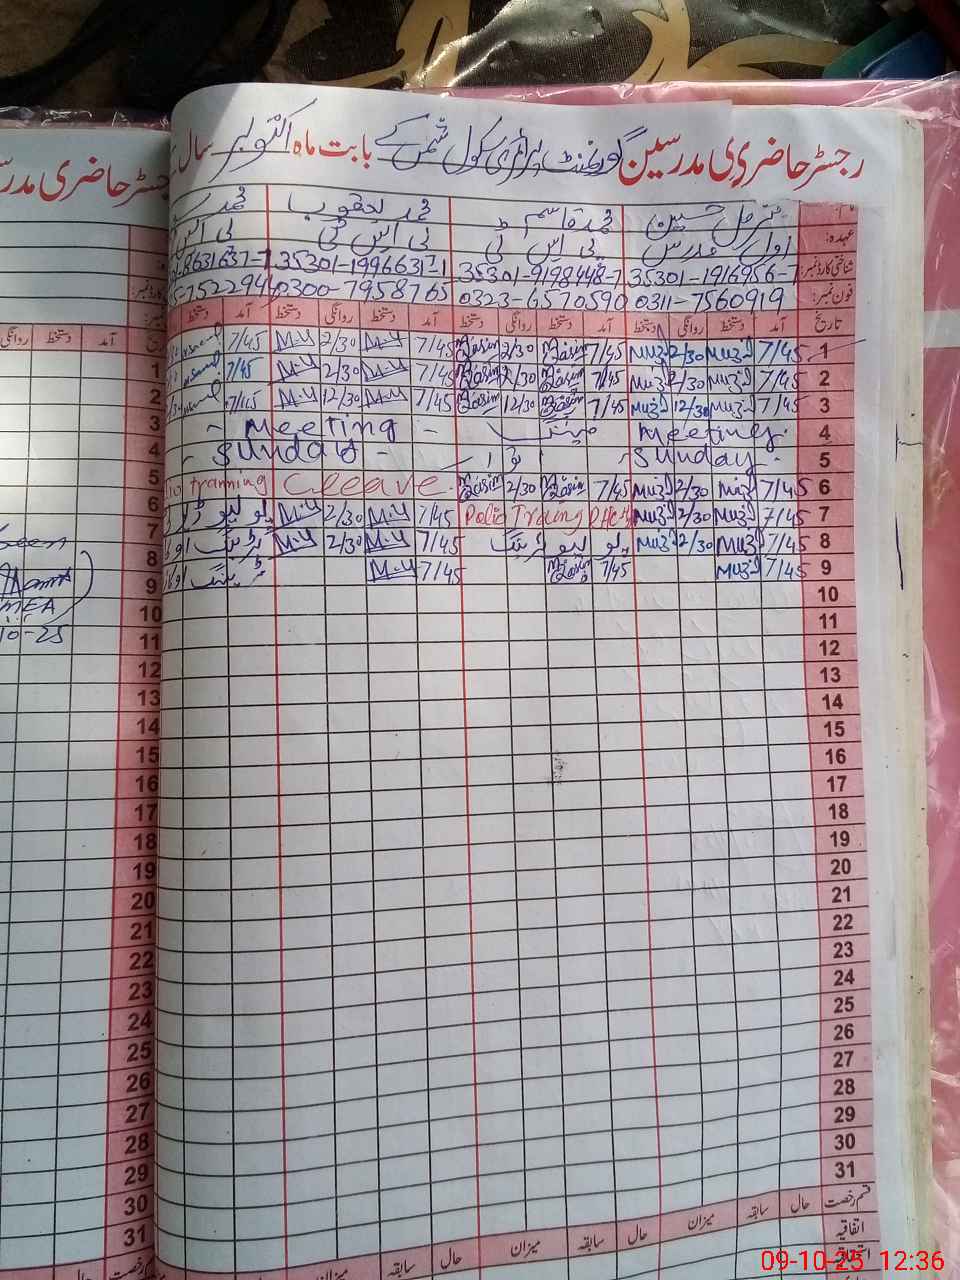 رجسٹر حاضری مدرسین گورنمنٹ پرائمری سکول شمس کے بابت ماہ اکتوبر سال
جسٹر حاضری مدر
مزمل حسین محمد قاسم محمد یعقوب محمد
عہدہ: اول مدرس پی ایس ٹی پی ایس ٹی پی ایس
شناختی کارڈ نمبر: 35301-1916956-7 35301-9198448-7 35301-1996637-1 8631637-7
فون نمبر: 0311-7560919 0323-6570590 0300-7958765 7522294
تاریخ آمد دستخط روانگی دستخط آمد دستخط روانگی دستخط آمد دستخط روانگی دستخط آمد
1 7/45 Muz 2/30 Muz 7/45 Qasim 2/30 Qasim 7/45 M.Y 2/30 M.Y 7/45
2 7/45 Muz 2/30 Muz 7/45 Qasim 2/30 Qasim 7/45 M.Y 2/30 M.Y 7/45
3 7/45 Muz 12/30 Muz 7/45 Qasim 12/30 Qasim 7/45 M.Y 12/30 M.Y 7/45
4 Meeting میٹنگ Meeting
5 Sunday Sunday
6 7/45 Muz 2/30 Muz 7/45 Qasim 2/30 Qasim Cleave tranning
7 7/45 Muz 2/30 Muz Polio Traing 7/45 M.Y 2/30 M.Y پولیو
8 7/45 Muz 2/30 Muz پولیو ٹرینگ 7/45 M.Y 2/30 M.Y ٹرینگ
9 7/45 Muz 7/45 Qasim 7/45 M.Y ٹرینگ
10
11
12
13
14
15
16
17
18
19
20
21
22
23
24
25
26
27
28
29
30
31
قسم رخصت حال سابقہ میزان حال سابقہ میزان حال سابقہ میزان
اتفاقیہ
روانگی دستخط آمد
1
2
3
4
5
6
7
8
9
10
11
12
13
14
15
16
17
18
19
20
21
22
23
24
25
26
27
28
29
30
31
رخصت حال
Seen
MEA
10-25
09-10-25 12:36